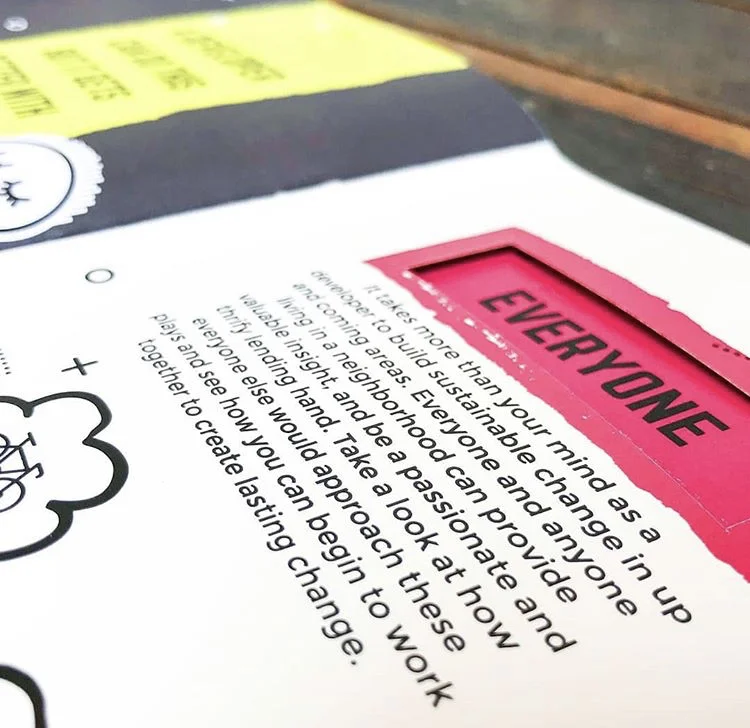 CAN DO THIS
BUT IT GETS
WITH
EVERYONE
It takes more than your mind as a
developer to build sustainable change in up
and coming areas. Everyone and anyone
living in a neighborhood can provide
valuable insight, and be a passionate and
thrify lending hand. Take a look at how
everyone else would approach these
plays and see how you can begin to work
together to create lasting change.